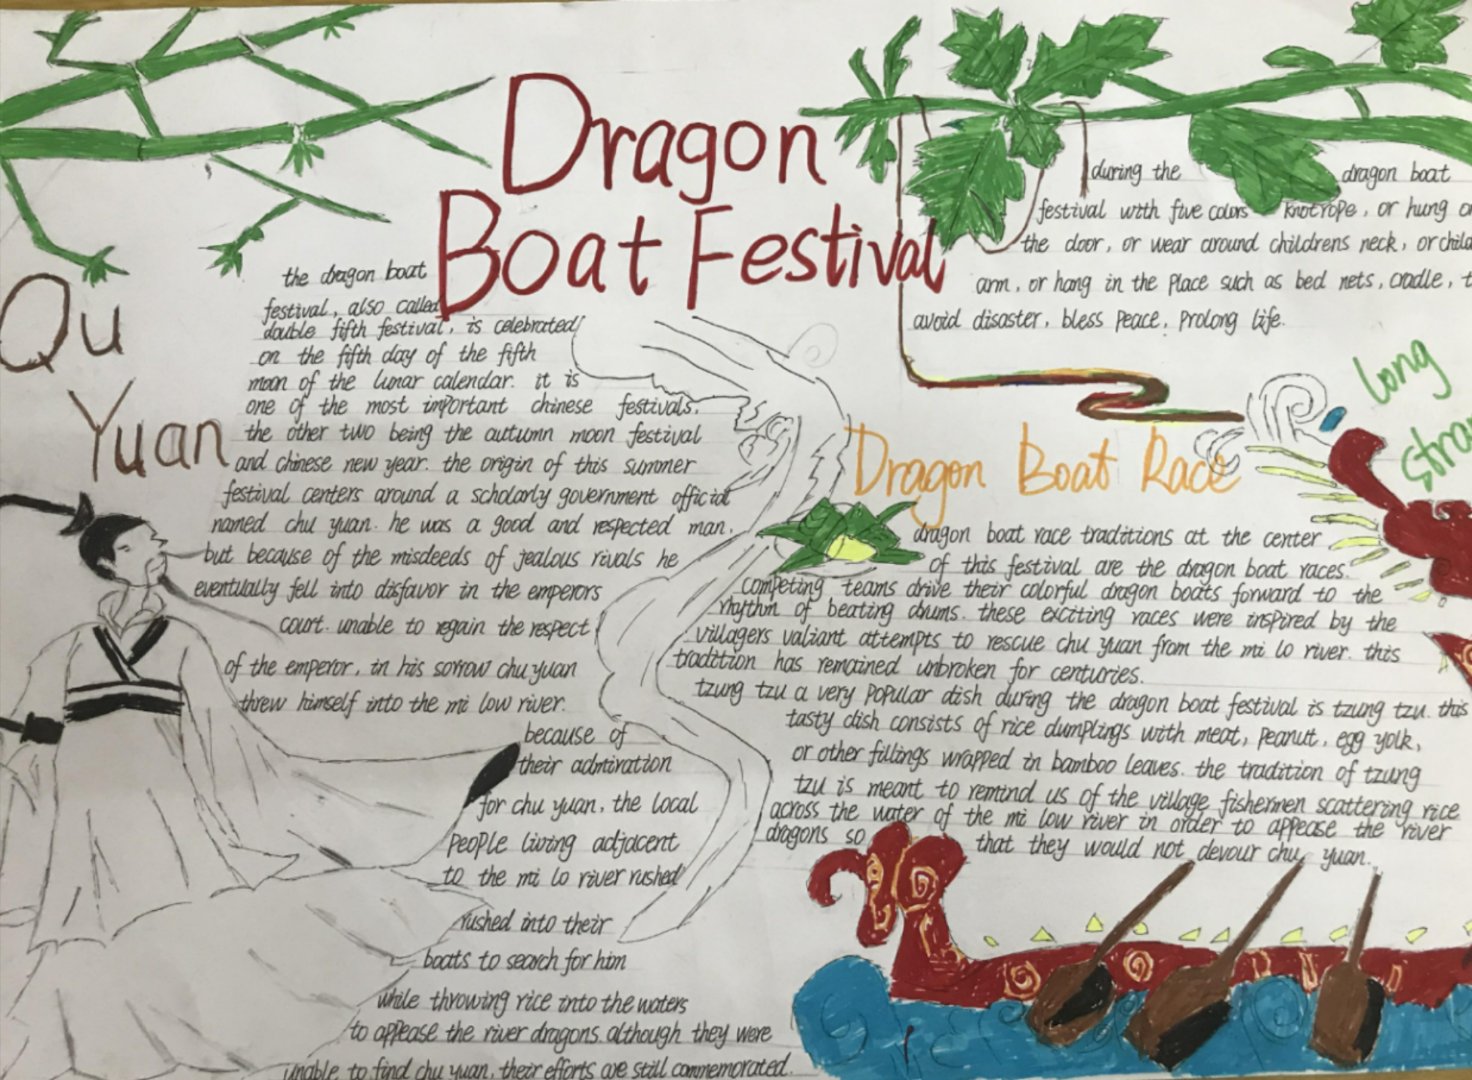 Dragon
Boat Festival
Qu
Yuan
the dragon boat
festival, also called
double fifth festival, is celebrated
on the fifth day of the fifth
moon of the lunar calendar. it is
one of the most important chinese festivals.
the other two being the autumn moon festival
and chinese new year. the origin of this summer
festival centers around a scholarly government official
named chu yuan. he was a good and respected man,
but because of the misdeeds of jealous rivals he
eventually fell into disfavor in the emperors
court. unable to regain the respect
of the emperor, in his sorrow chu yuan
threw himself into the mi low river.
because of
their admiration
for chu yuan, the local
people living adjacent
to the mi lo river rushed
rushed into their
boats to search for him
while throwing rice into the waters
to appease the river dragons. although they were
unable to find chu yuan, their efforts are still commemorated.
during the dragon boat
festival with five colors knotrope, or hung
the door, or wear around childrens neck, or
arm, or hang in the place such as bed nets, cradle,
avoid disaster, bless peace, prolong life.
long
Dragon Boat Race
dragon boat race traditions at the center
of this festival are the dragon boat races.
competing teams drive their colorful dragon boats forward to the
rhythm of beating drums. these exciting races were inspired by the
villagers valiant attempts to rescue chu yuan from the mi lo river. this
tradition has remained unbroken for centuries.
tzung tzu a very popular dish during the dragon boat festival is tzung tzu. this
tasty dish consists of rice dumplings with meat, peanut, egg yolk,
or other fillings wrapped in bamboo leaves. the tradition of tzung
tzu is meant to remind us of the village fishermen scattering rice
across the water of the mi low river in order to appease the river
dragons so that they would not devour chu yuan.